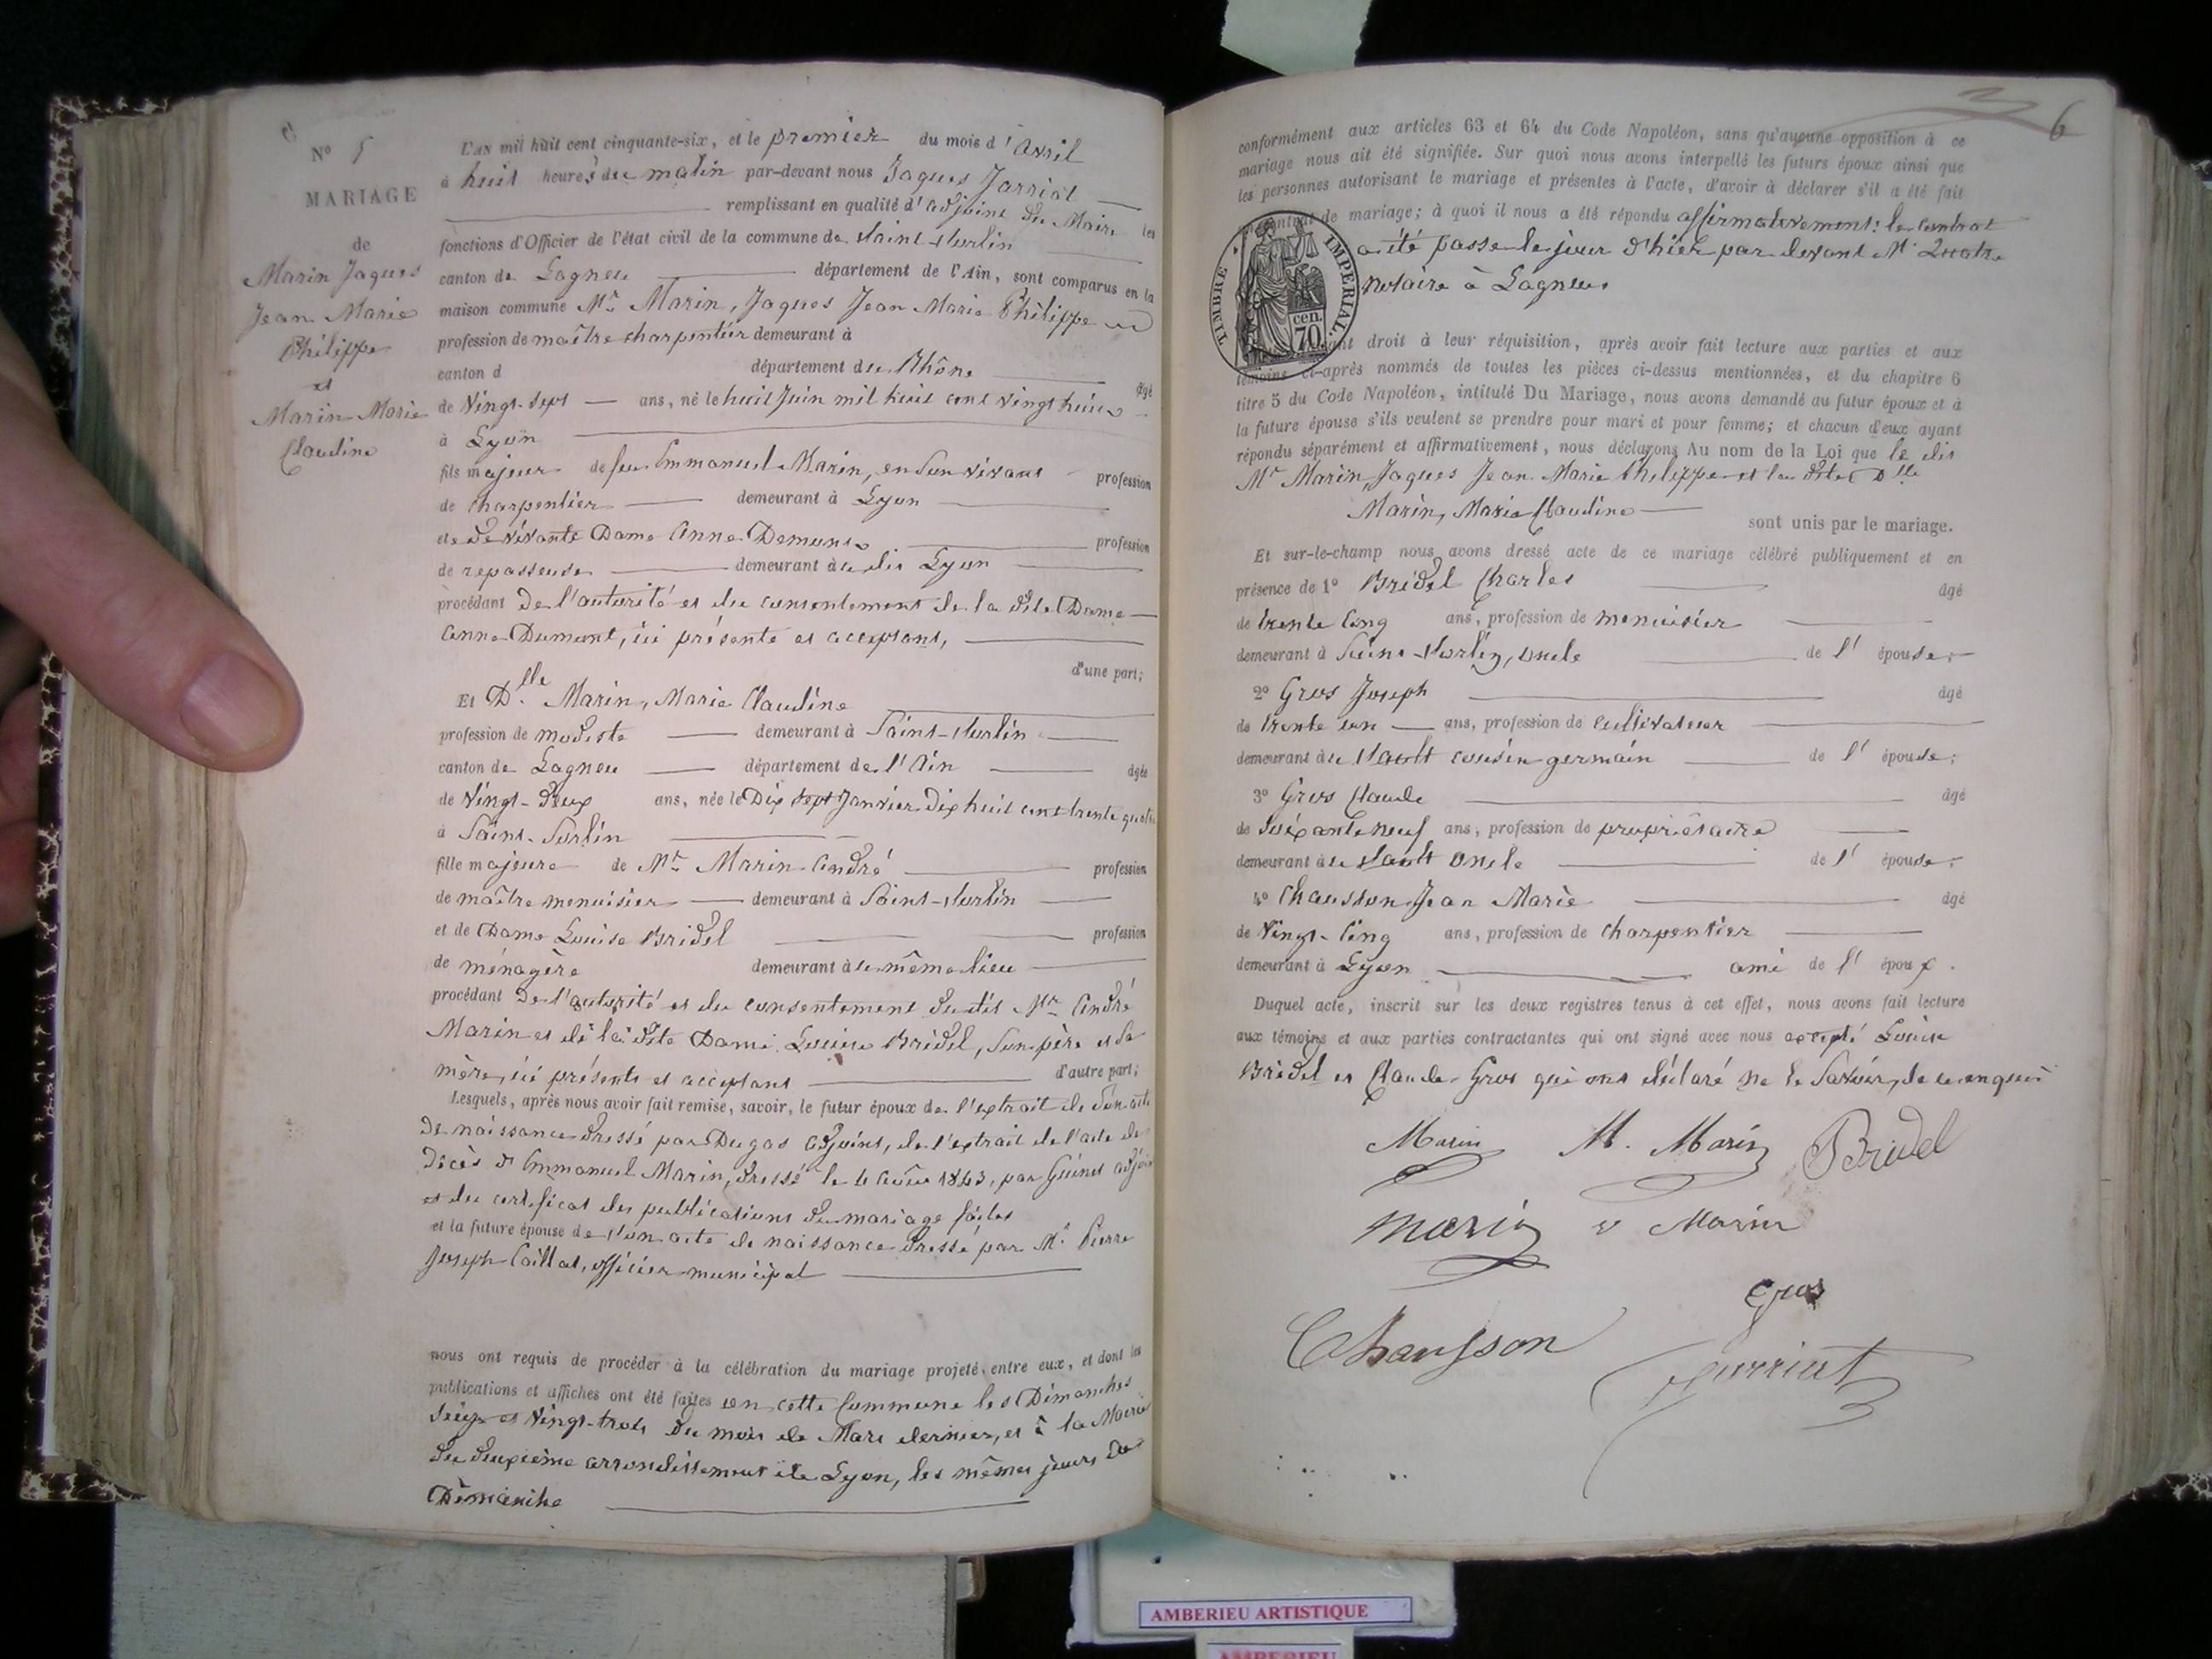 N° 5
MARIAGE
de
Marin Jaques
Jean Marie
Philippe
et
Marin Marie
Claudine
L'AN mil huit cent cinquante-six, et le premier du mois d'Avril
à huit heures du matin par-devant nous Jaques Jarriat
remplissant en qualité d'adjoint du Maire les
fonctions d'Officier de l'état civil de la commune de Saint-Sorlin
canton de Lagneu département de l'Ain, sont comparus en la
maison commune Mr Marin, Jaques Jean Marie Philippe
profession de maître charpentier demeurant à
canton d département du Rhône âgé
de Vingt-sept ans, né le huit Juin mil huit cent vingt huit
à Lyon
fils majeur de feu Emmanuel Marin, en son vivant profession
de charpentier demeurant à Lyon
et de vivante Dame Anne Demont profession
de repasseuse demeurant à u dit Lyon
procédant De l'autorité et du consentement de la dite Dame
Anne Dumont, ici présente et acceptant,
d'une part;
Et Dlle Marin, Marie Claudine
profession de modiste demeurant à Saint-Sorlin
canton de Lagneu département de l'Ain âgée
de Vingt-deux ans, née le Dix sept Janvier dix huit cent trente quatre
à Saint-Sorlin
fille majeure de Mr Marin André profession
de maître menuisier demeurant à Saint-Sorlin
et de Dame Louise Bridel profession
de ménagère demeurant à u même lieu
procédant De l'autorité et du consentement dudit Mr André
Marin et de la dite Dame Louise Bridel, son père et sa
mère, ici présents et acceptans d'autre part;
Lesquels, après nous avoir fait remise, savoir, le futur époux de l'extrait de son acte
de naissance dressé par Dugas adjoint, de l'extrait de l'acte de
décès d'Emmanuel Marin, dressé le 4 Août 1843, par Guinet adjoint
et du certificat des publications du mariage faites
et la future épouse de son acte de naissance dressé par Mr Pierre
Joseph Caillat, officier municipal
nous ont requis de procéder à la célébration du mariage projeté entre eux, et dont les
publications et affiches ont été faites en cette Commune les Dimanches
seize et Vingt-trois du mois de Mars dernier, et à la Mairie
du deuxième arrondissement de Lyon, les mêmes jours de
Dimanche
6
conformément aux articles 63 et 64 du Code Napoléon, sans qu'aucune opposition à ce
mariage nous ait été signifiée. Sur quoi nous avons interpellé les futurs époux ainsi que
les personnes autorisant le mariage et présentes à l'acte, d'avoir à déclarer s'il a été fait
contrat de mariage; à quoi il nous a été répondu affirmativement: le contrat
a été passé le jour d'hier par devant Me
notaire à Lagneu
TIMBRE IMPERIAL.
cen.
70
droit à leur réquisition, après avoir fait lecture aux parties et aux
témoins ci-après nommés de toutes les pièces ci-dessus mentionnées, et du chapitre 6
titre 5 du Code Napoléon, intitulé Du Mariage, nous avons demandé au futur époux et à
la future épouse s'ils veulent se prendre pour mari et pour femme; et chacun d'eux ayant
répondu séparément et affirmativement, nous déclarons Au nom de la Loi que le dit
Mr Marin, Jaques Jean Marie Philippe et la dite Dlle
Marin, Marie Claudine
sont unis par le mariage.
Et sur-le-champ nous avons dressé acte de ce mariage célébré publiquement et en
présence de 1° Bridel Charles âgé
de trente cinq ans, profession de menuisier
demeurant à Saint-Sorlin, oncle de l'épouse;
2° Gros Joseph âgé
de trente un ans, profession de cultivateur
demeurant à u cousin germain de l'épouse;
3° Gros Claude âgé
de soixante neuf ans, profession de propriétaire
demeurant à u oncle de l'épouse;
4° Chausson Jean Marie âgé
de Vingt-cinq ans, profession de charpentier
demeurant à Lyon ami de l'époux.
Duquel acte, inscrit sur les deux registres tenus à cet effet, nous avons fait lecture
aux témoins et aux parties contractantes qui ont signé avec nous excepté Louise
Bridel et Claude Gros qui ont déclaré ne le Savoir, de ce enquis
Marin M. Marin Bridel
Marin Marin
Gros
Chausson Jarriat
AMBERIEU ARTISTIQUE
AMBERIEU